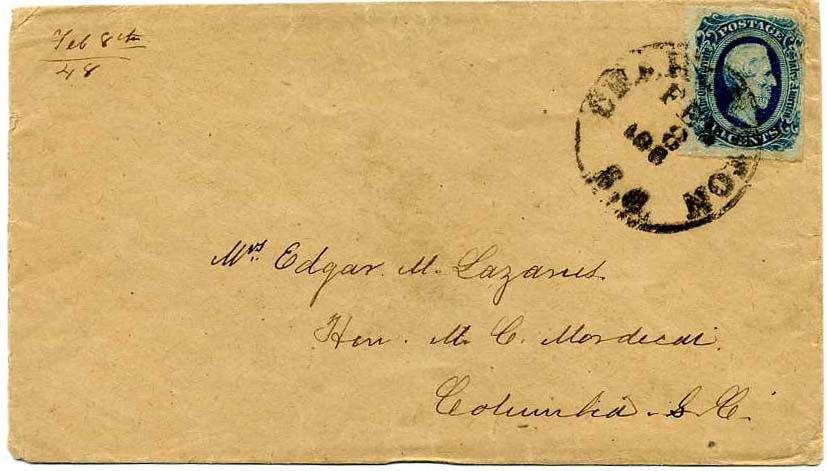 Feb 8th
48
POSTAGE
CENTS
FEB
8
186
Mrs Edgar. M. Lazarus.
Hon. M. C. Mordecai.
Columbia. S. C.